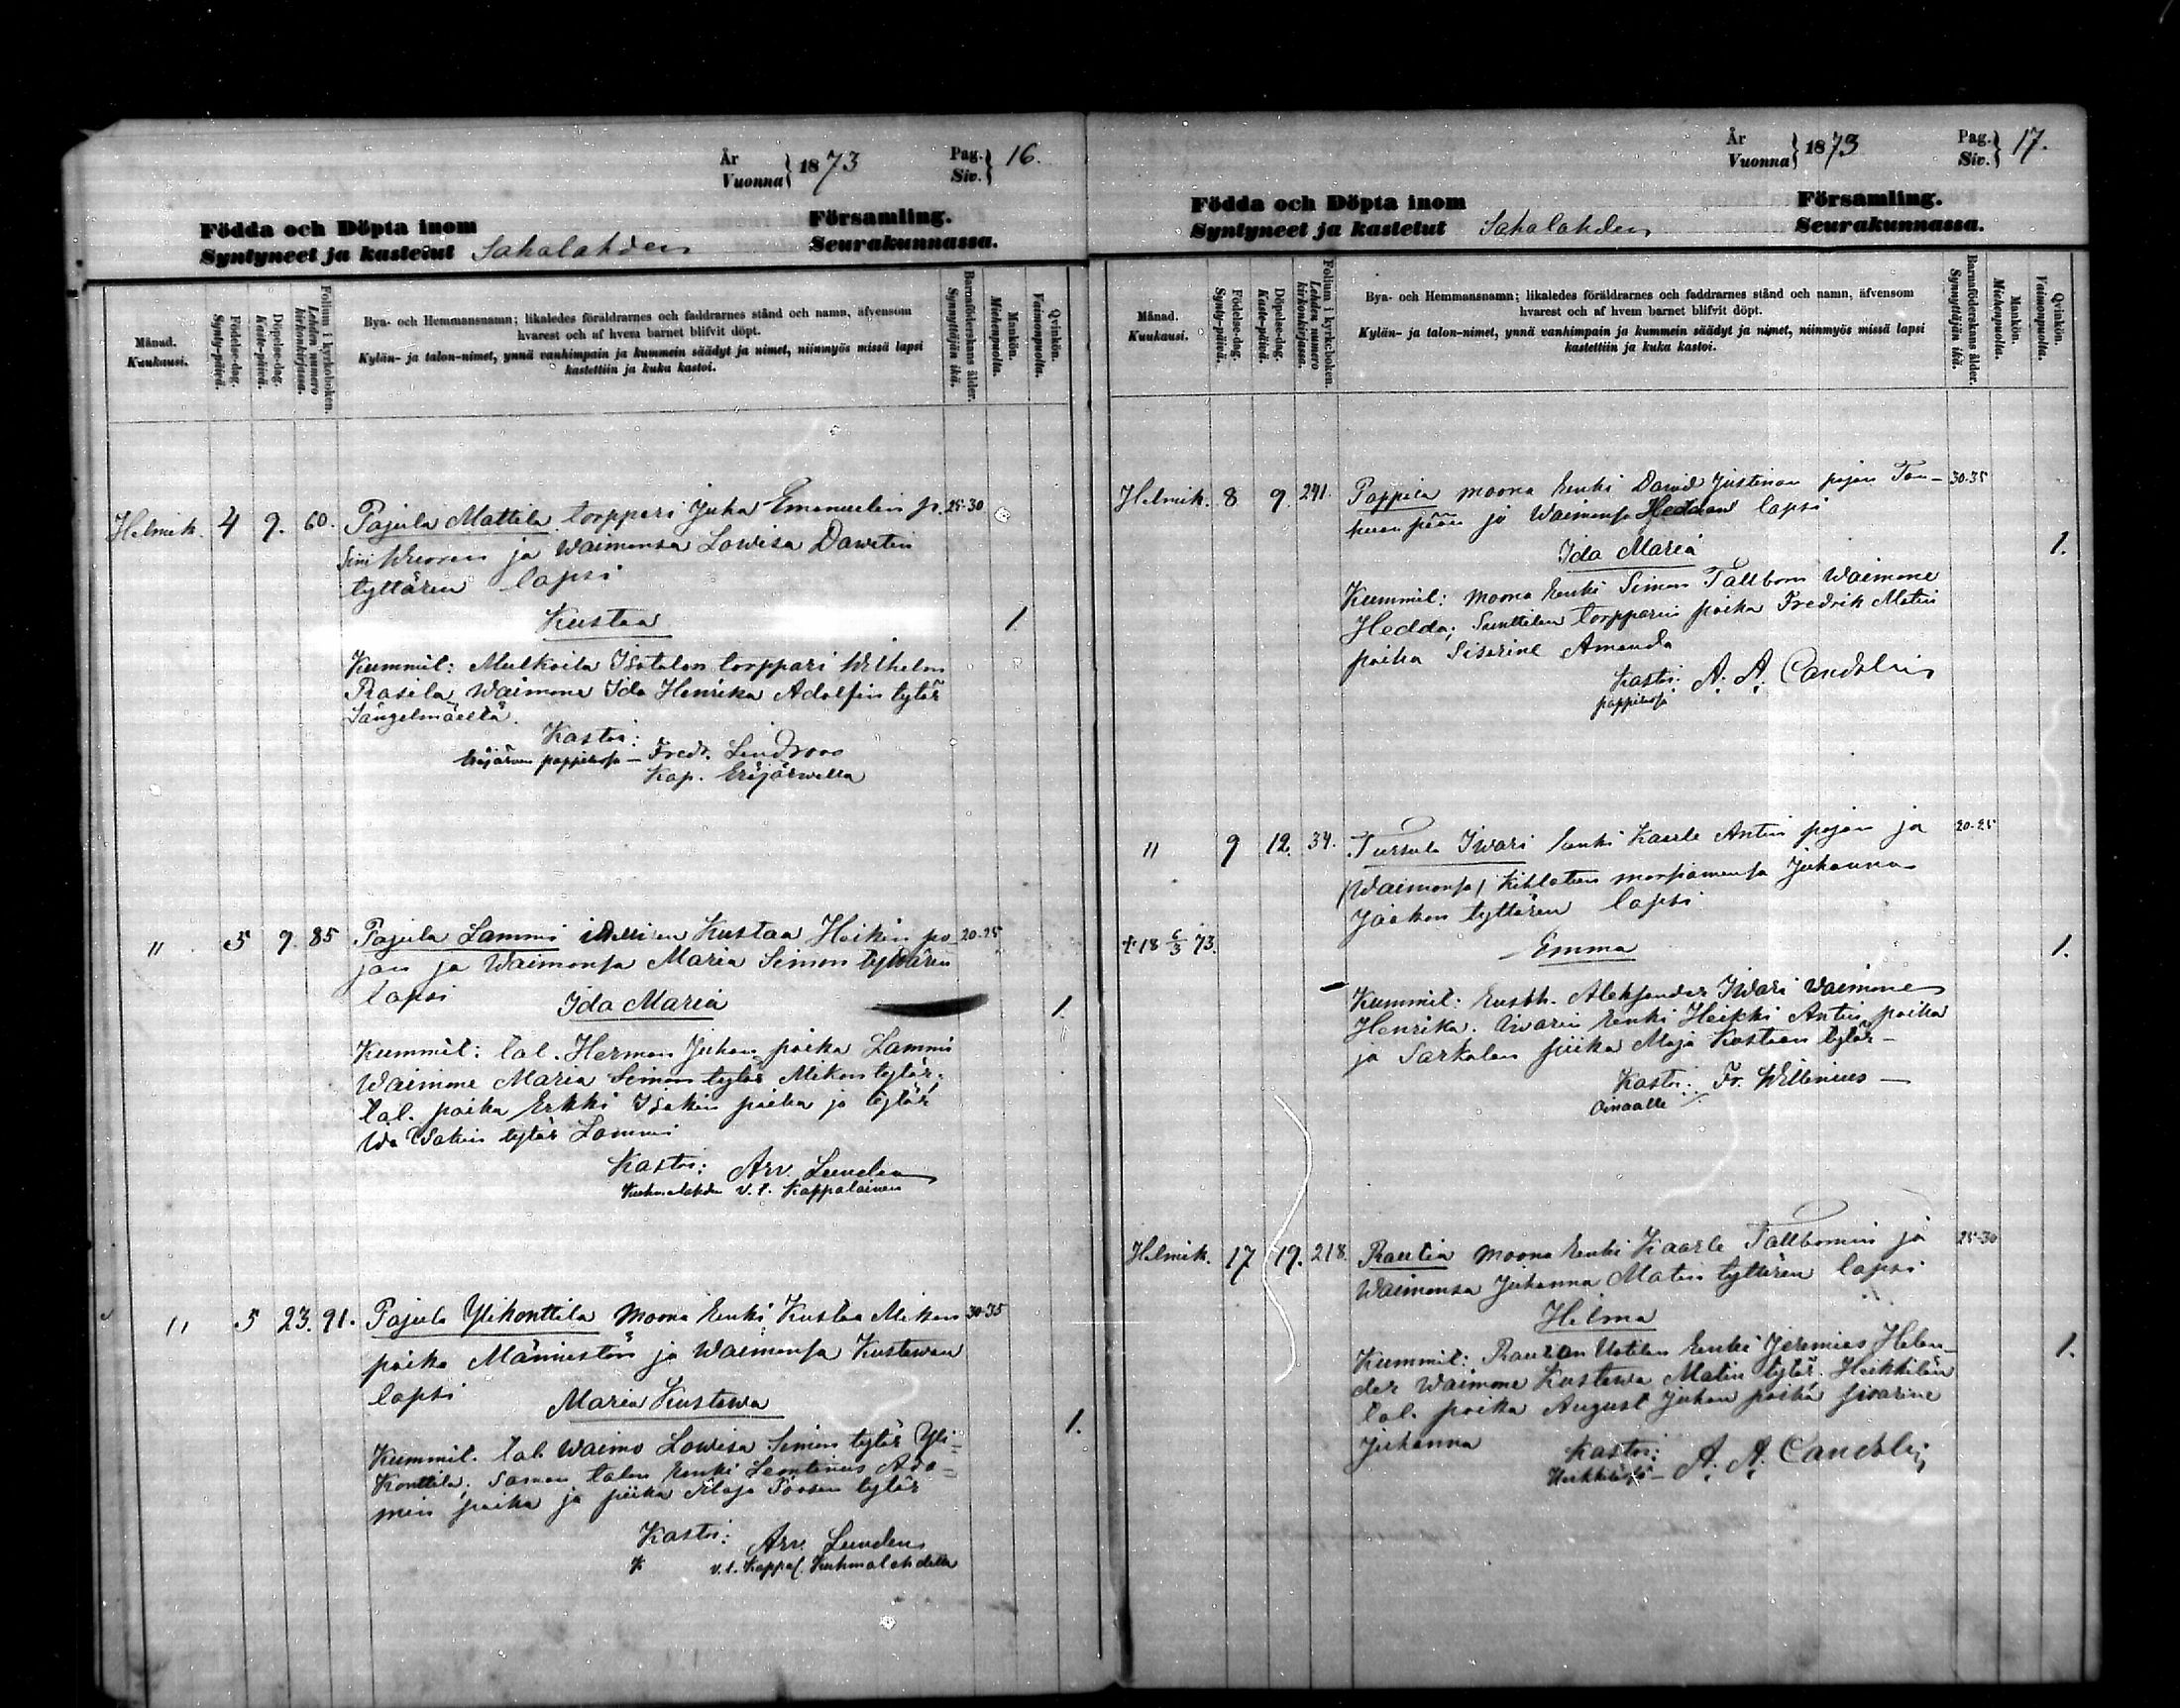 År
Vuonna } 1873
Pag.
Siv. } 16.
Födda och Döpta inom
Syntyneet ja kastetut Sahalahden
Församling.
Seurakunnassa.
Månad.
Kuukausi.
Födelse-dag.
Synty-päivä.
Döpelse-dag.
Kaste-päivä.
Folium i kyrkoboken.
Lehden numero
kirkonkirjassa.
Bya- och Hemmansnamn; likaledes föräldrarnes och faddrarnes stånd och namn, äfvensom
hvarest och af hvem barnet blifvit döpt.
Kylän- ja talon-nimet, ynnä vanhimpain ja kummein säädyt ja nimet, niinmyös missä lapsi
kastettiin ja kuka kastoi.
Barnaföderskans ålder.
Synnyttäjän ikä.
Mankön.
Miehenpuolta.
Qvinkön.
Vaimonpuolta.
Helmik. 4 9. 60. Pajula Mattila torppari Juha Emanuelin p. 25-30
ja Waimonsa Lowisa Dawitin
tyttären lapsi
Kustaa 1.
Kummit: Mulkoila Isotalon torppari Wilhelm
Rasila Waimone Ida Henrika Adolfin tytär
Längelmäeltä.
Kastoi: Fredr. Lindroos
Eräjärven pappilassa
Kap. Eräjärwella
" 5 9. 85 Pajula Lammi Kustaa Heikin po- 20-25
jan ja Waimonsa Maria Simon tyttären
lapsi Ida Maria 1.
Kummit: tal. Herman Juhan poika Lammi
Waimone Maria Simon tytär Mikon tytär;
tal. poika Erkki Isakin poika ja tytär
Ida Isakin tytär Lammi
Kastoi: Arv. Lunden
Kuhmalahden v.t. Kappalainen
" 5 23. 91. Pajula Ylikonttila Moona Renki Kustaa Mikon 30-35
poika Männistön ja Waimonsa Kustawan
lapsi Maria Kustawa 1.
Kummit. tal. Waimo Lowisa Simon tytär Yli=
Konttila; saman talon Renki Leontinus Ada=
min poika ja piika Maja tytär
Kastoi: Arv. Lunden
K v.t. Kappal. Kuhmalahdella
År
Vuonna } 1873
Pag.
Siv. } 17.
Födda och Döpta inom
Syntyneet ja kastetut Sahalahden
Församling.
Seurakunnassa.
Månad.
Kuukausi.
Födelse-dag.
Synty-päivä.
Döpelse-dag.
Kaste-päivä.
Folium i kyrkoboken.
Lehden numero
kirkonkirjassa.
Bya- och Hemmansnamn; likaledes föräldrarnes och faddrarnes stånd och namn, äfvensom
hvarest och af hvem barnet blifvit döpt.
Kylän- ja talon-nimet, ynnä vanhimpain ja kummein säädyt ja nimet, niinmyös missä lapsi
kastettiin ja kuka kastoi.
Barnaföderskans ålder.
Synnyttäjän ikä.
Mankön.
Miehenpuolta.
Qvinkön.
Vaimonpuolta.
Helmik. 8 9. 241. Pappila moona Renki David Justinan pojan Tau- 30-35
ja Waimonsa Heddan lapsi
Ida Maria 1.
Kummit: moona Renki Simon Tallbom Waimone
Hedda; Sunttilan torpparin poika Fredrik Matin
poika Sisarine Amanda
Kastoi: A. A. Candolin
pappilassa
" 9 12. 34. Tursula Iwari Renki Kaarle Antin pojan ja 20-25
(Waimonsa) Kihlatun morsiamensa Juhanna
Jaakon tyttären lapsi
† 18 6/3 73. Emma 1.
Kummit: Rusth. Aleksander Iwari Waimone
Henrika. Iwarin Renki Heikki Antin poika
ja Sarkalan piika Maja Kustaan tytär
Kastoi: Fr. Willenius
Oinaalla
Helmik. 17 19. 218. Rautia Moona Renki Kaarle Tallbomin ja 25-30
Waimonsa Juhanna Matin tyttären lapsi
Helma 1.
Kummit: Rautian Uotilan Renki Jeremias Helan-
der Waimone Kustawa Matin tytär. Heikkilän
tal. poika August Juhan poika sisarine
Juhanna Kastoi: A. A. Candolin
Heikkilässä